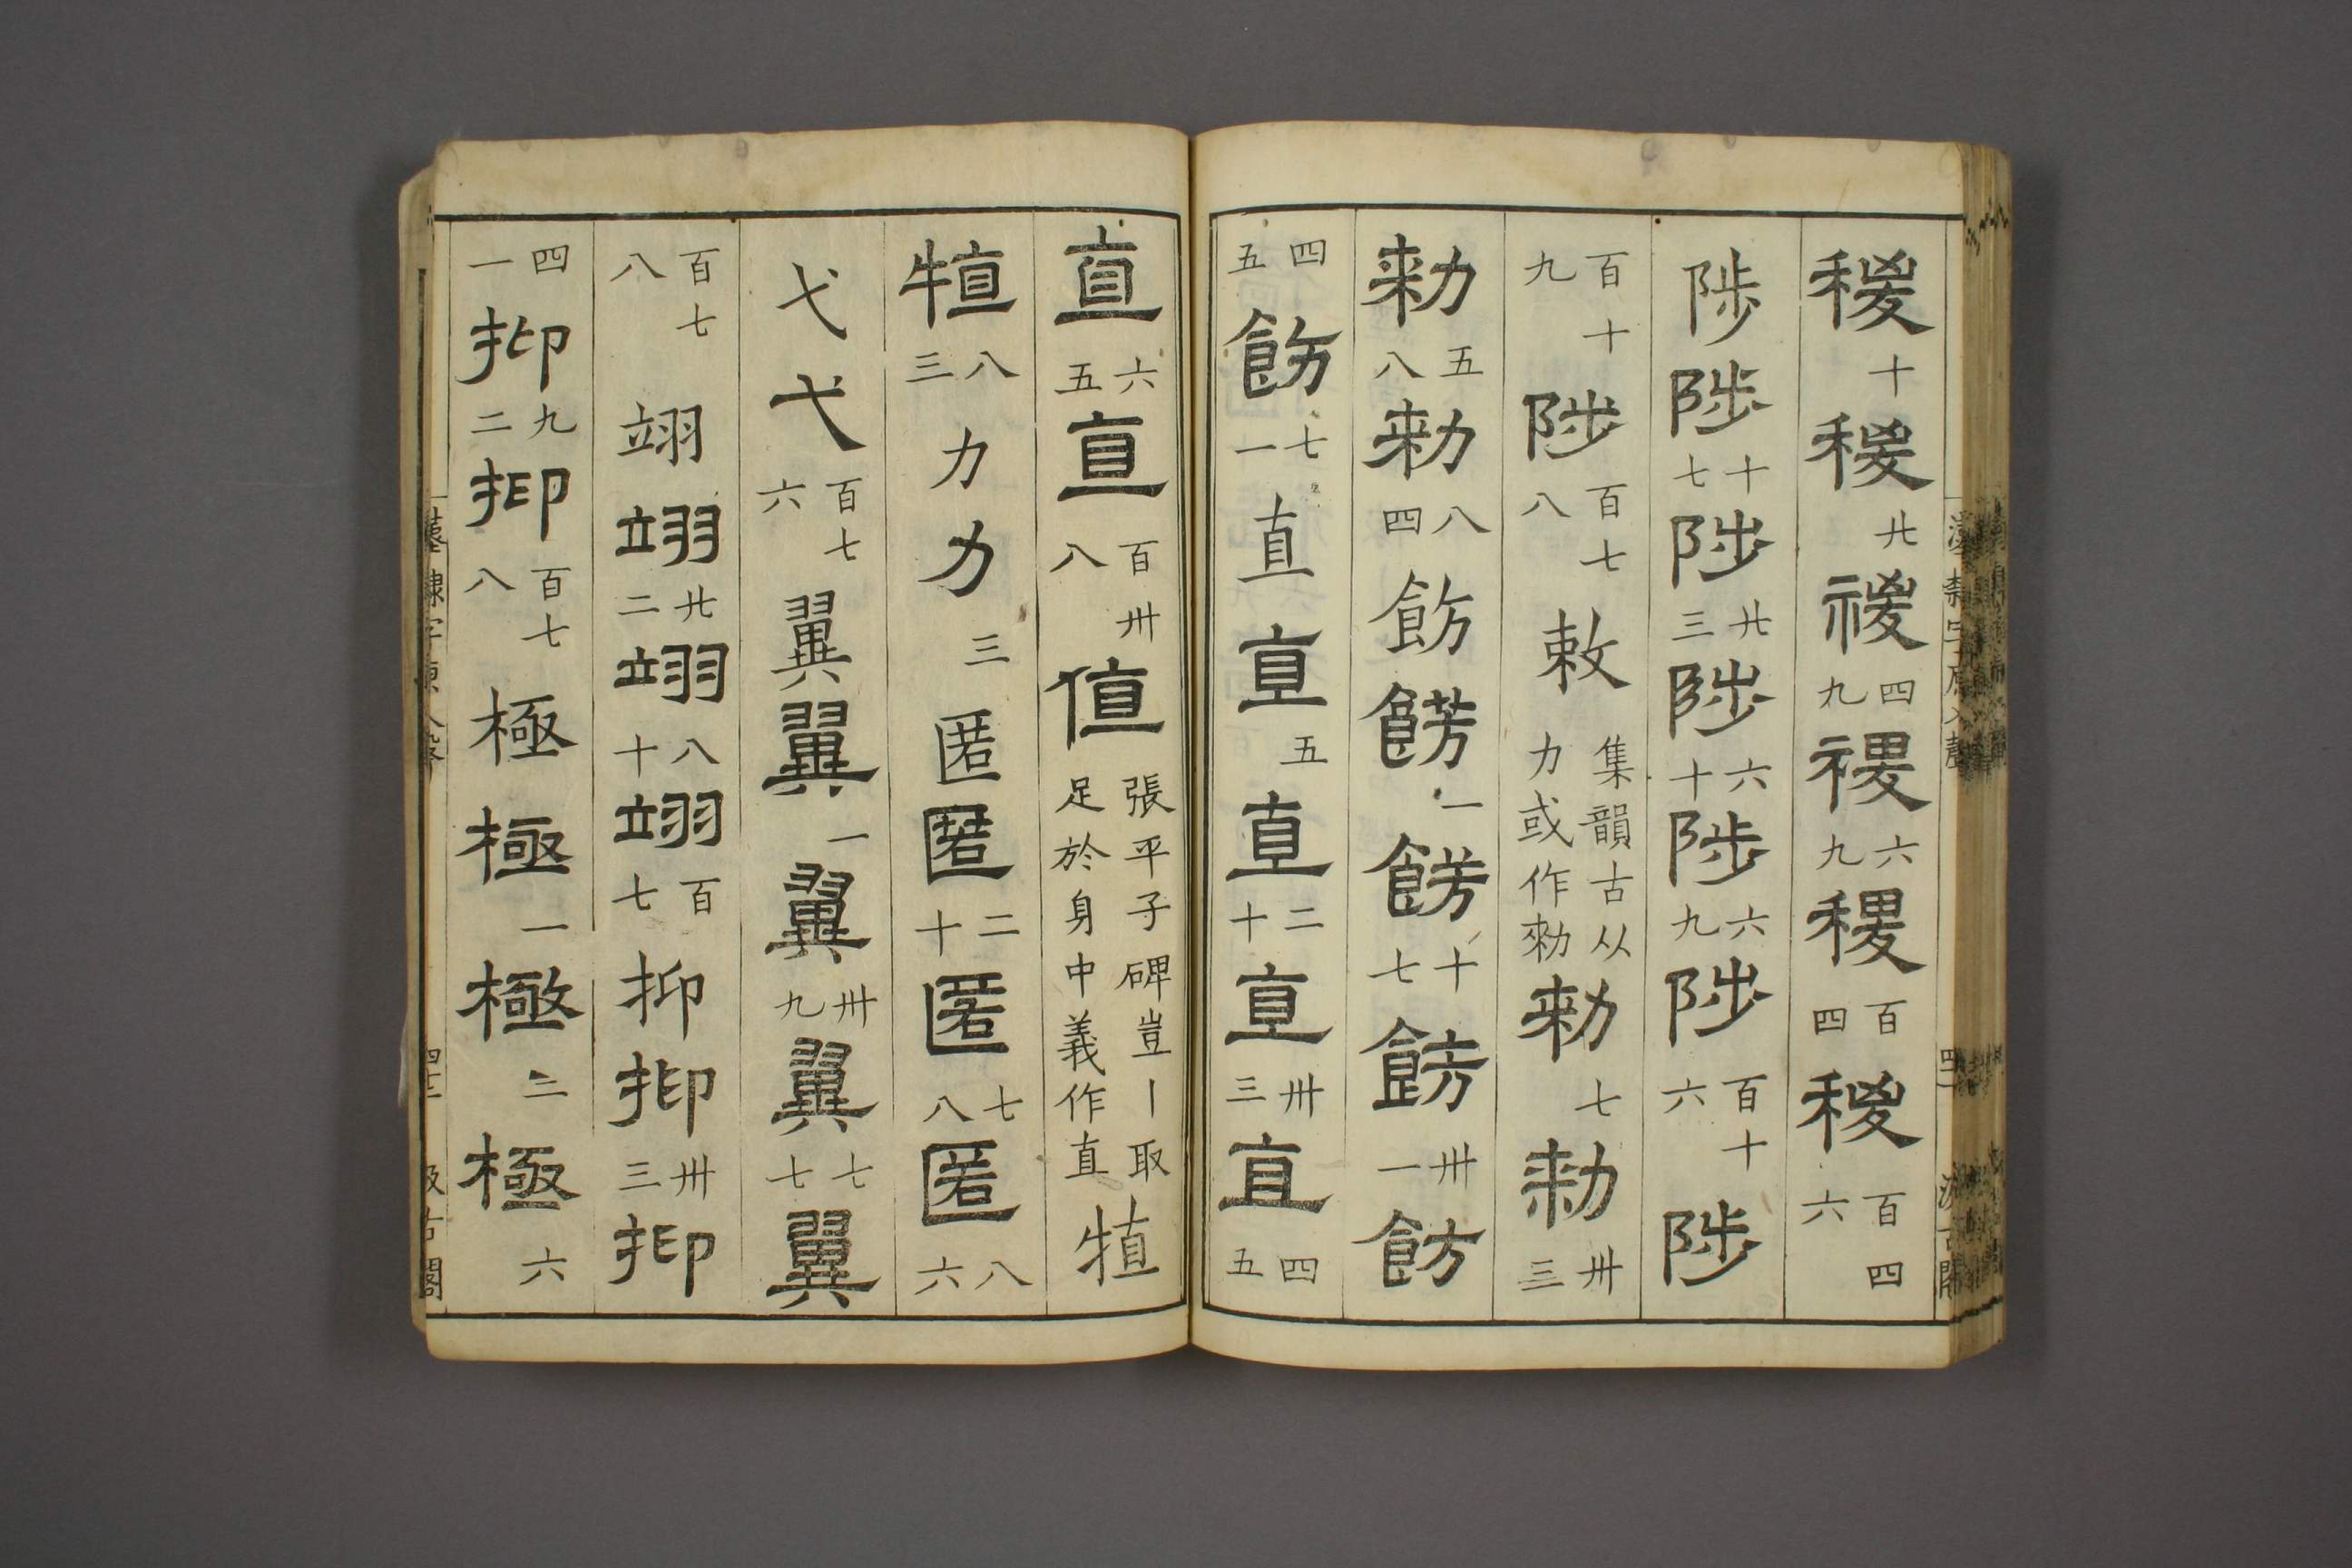 稷十稷廿稷四九稷六九稷百四稷百四六
陟陟十七陟廿三陟六十陟六九陟百十六陟
百十九陟百七八敕集韻古从力或作勑勑七勑卅三
勑五八勑八四飭飭一飭十七飭卅一飭
四五飭七一直直五直二十直卅三直四五
直六五直百卅八值張平子碑豈丨取足於身中義作直犆
犆八三力力三匿匿二十匿七八匿八六
弋弋百七六翼翼一翼卅九翼七七翼
百七八翊翊廿二翊八十翊百七抑抑卅三抑
四一抑九二抑百七八極極一極二極六